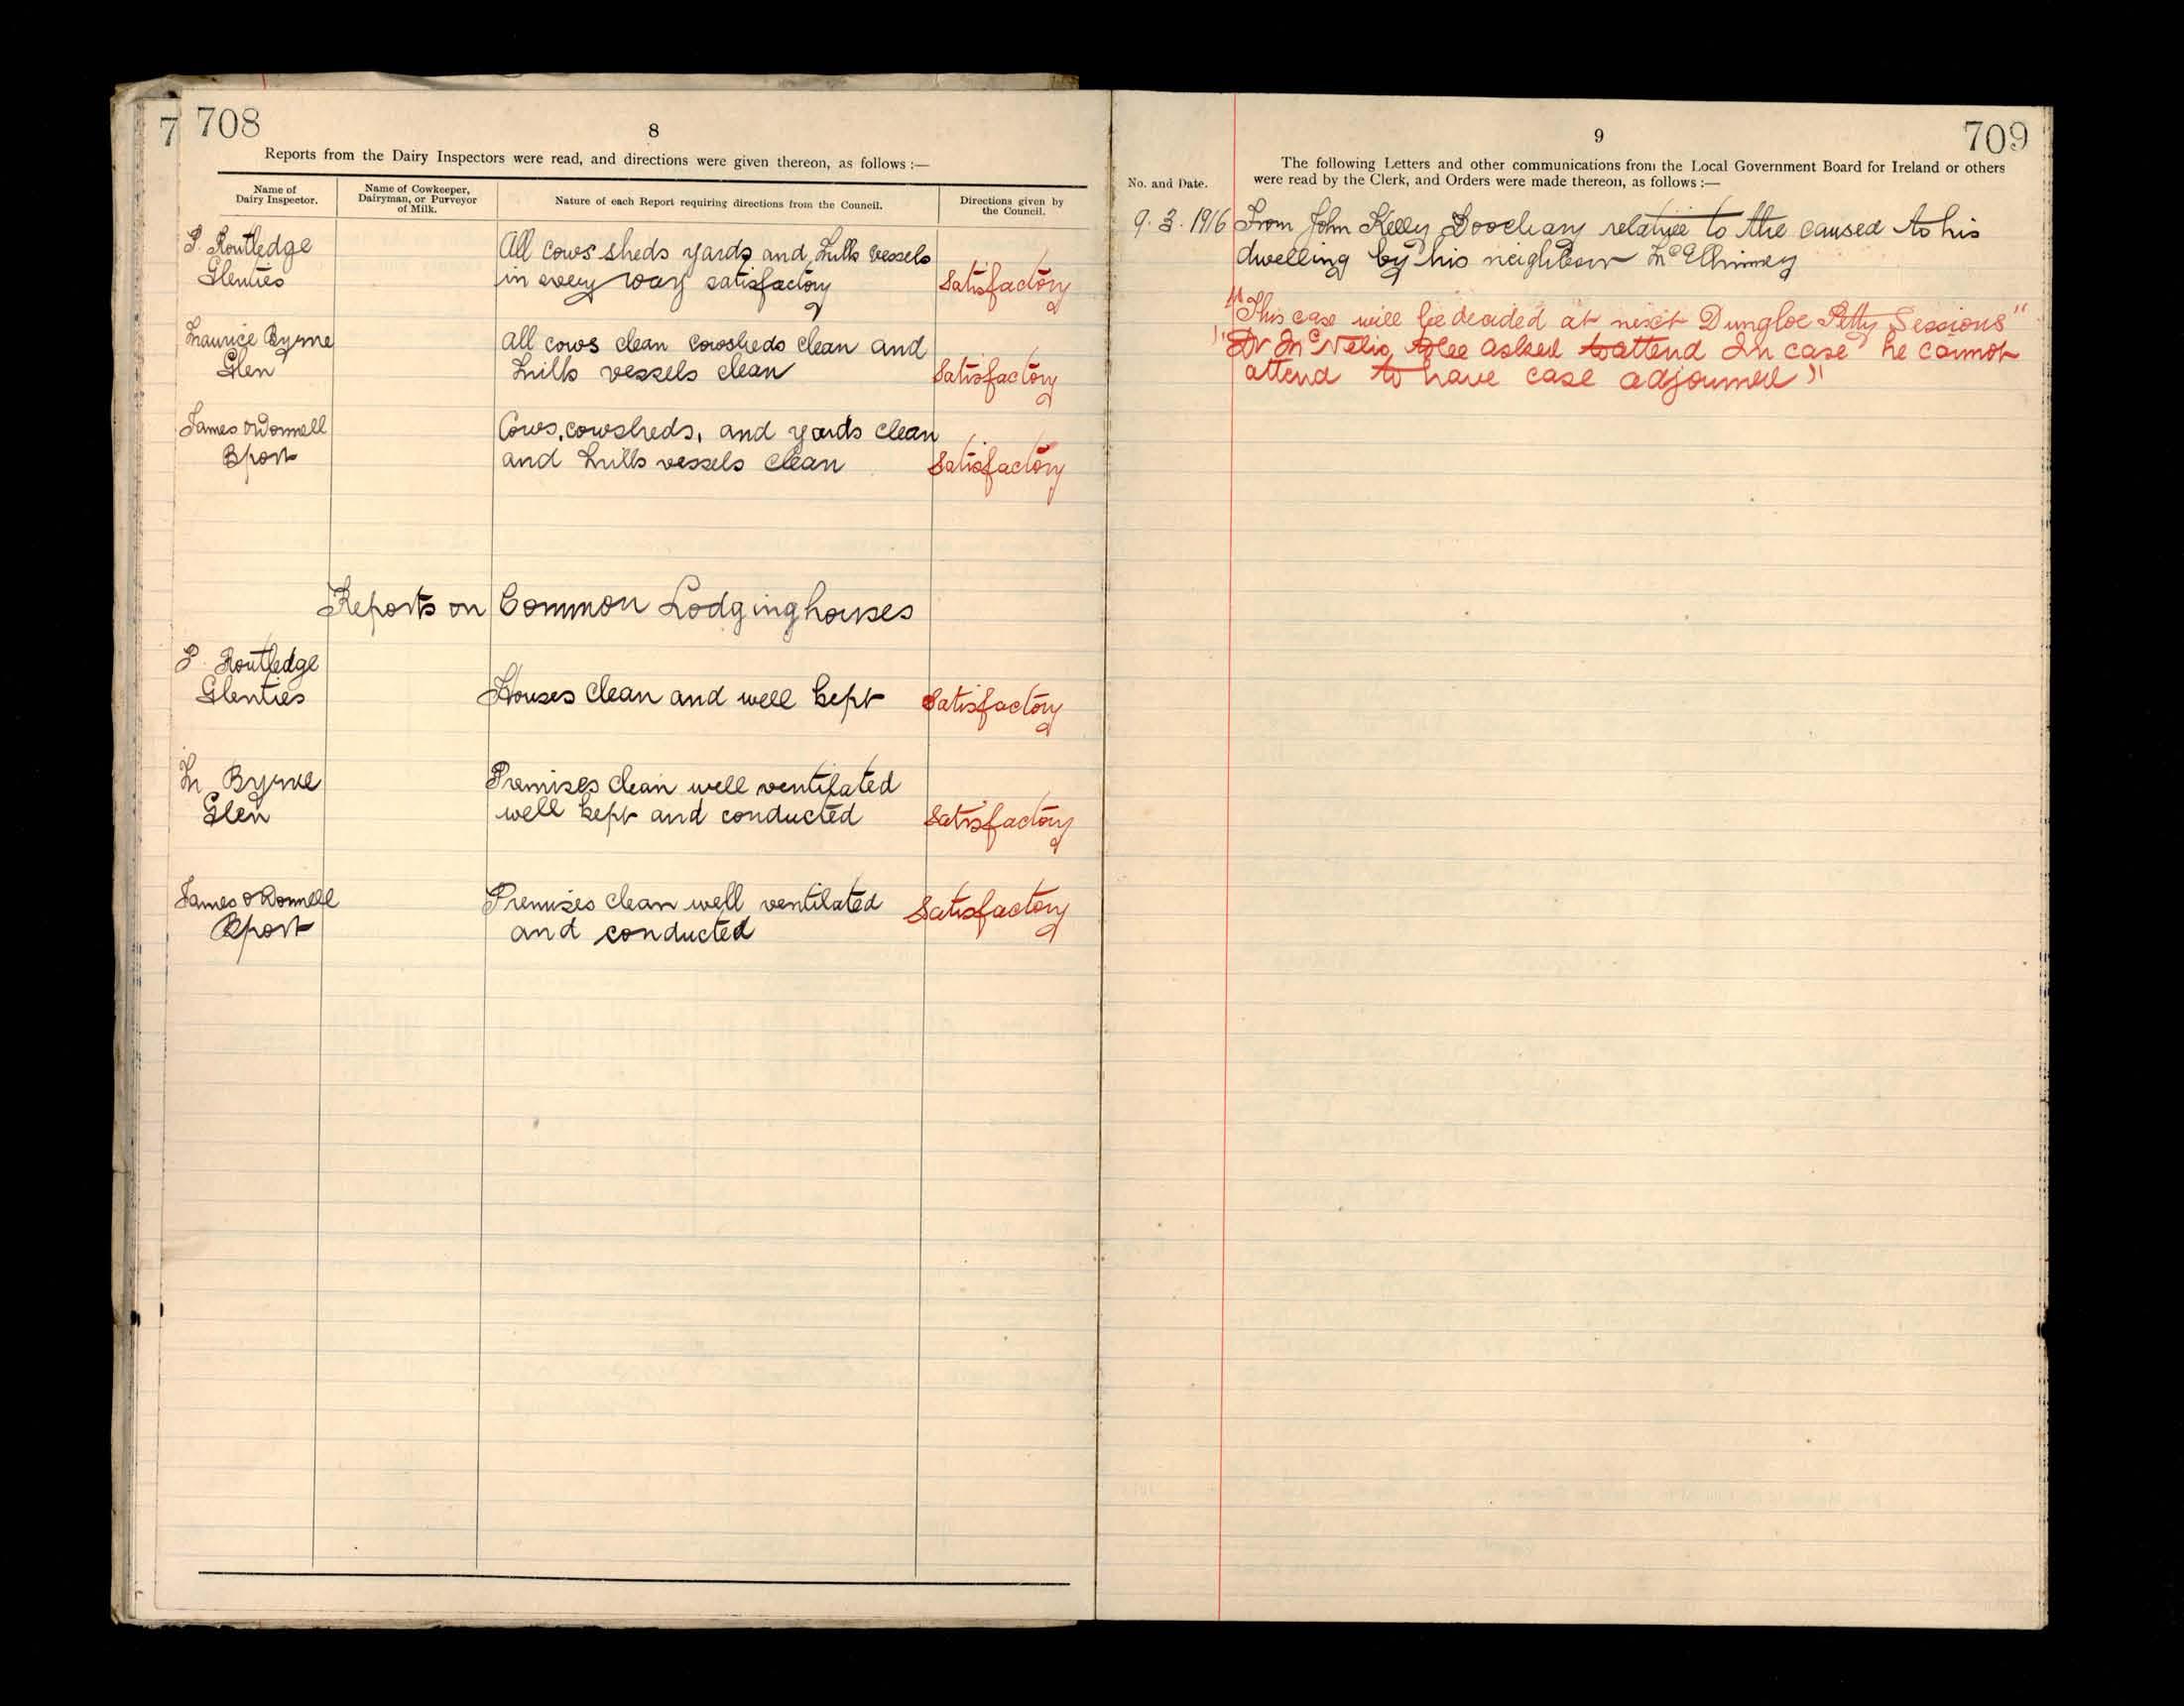 7 708
8
Reports from the Dairy Inspectors were read, and directions were given thereon, as follows :—
Name of Dairy Inspector. | Name of Cowkeeper, Dairyman, or Purveyor of Milk. | Nature of each Report requiring directions from the Council. | Directions given by the Council.
P. Routledge All cows sheds yards and Milk vessels
Glenties in every way satisfactory Satisfactory
Maurice Byrne All cows clean cowsheds clean and
Glen Milk vessels clean Satisfactory
James O'Donnell Cows, cowsheds, and yards clean
Bport and Milk vessels clean Satisfactory
Reports on Common Lodginghouses
P. Routledge
Glenties Houses clean and well kept Satisfactory
M Byrne Premises clean well ventilated
Glen well kept and conducted Satisfactory
James O'Donnell Premises clean well ventilated Satisfactory
Bport and conducted
9 709
The following Letters and other communications from the Local Government Board for Ireland or others
No. and Date. were read by the Clerk, and Orders were made thereon, as follows :—
9. 3. 1916 From John Kelly Doochary relative to the caused to his
dwelling by his neighbour McElhinney
"This case will be decided at next Dungloe Petty Sessions"
"Dr McNelis asked to attend In case he cannot
attend to have case adjourned"